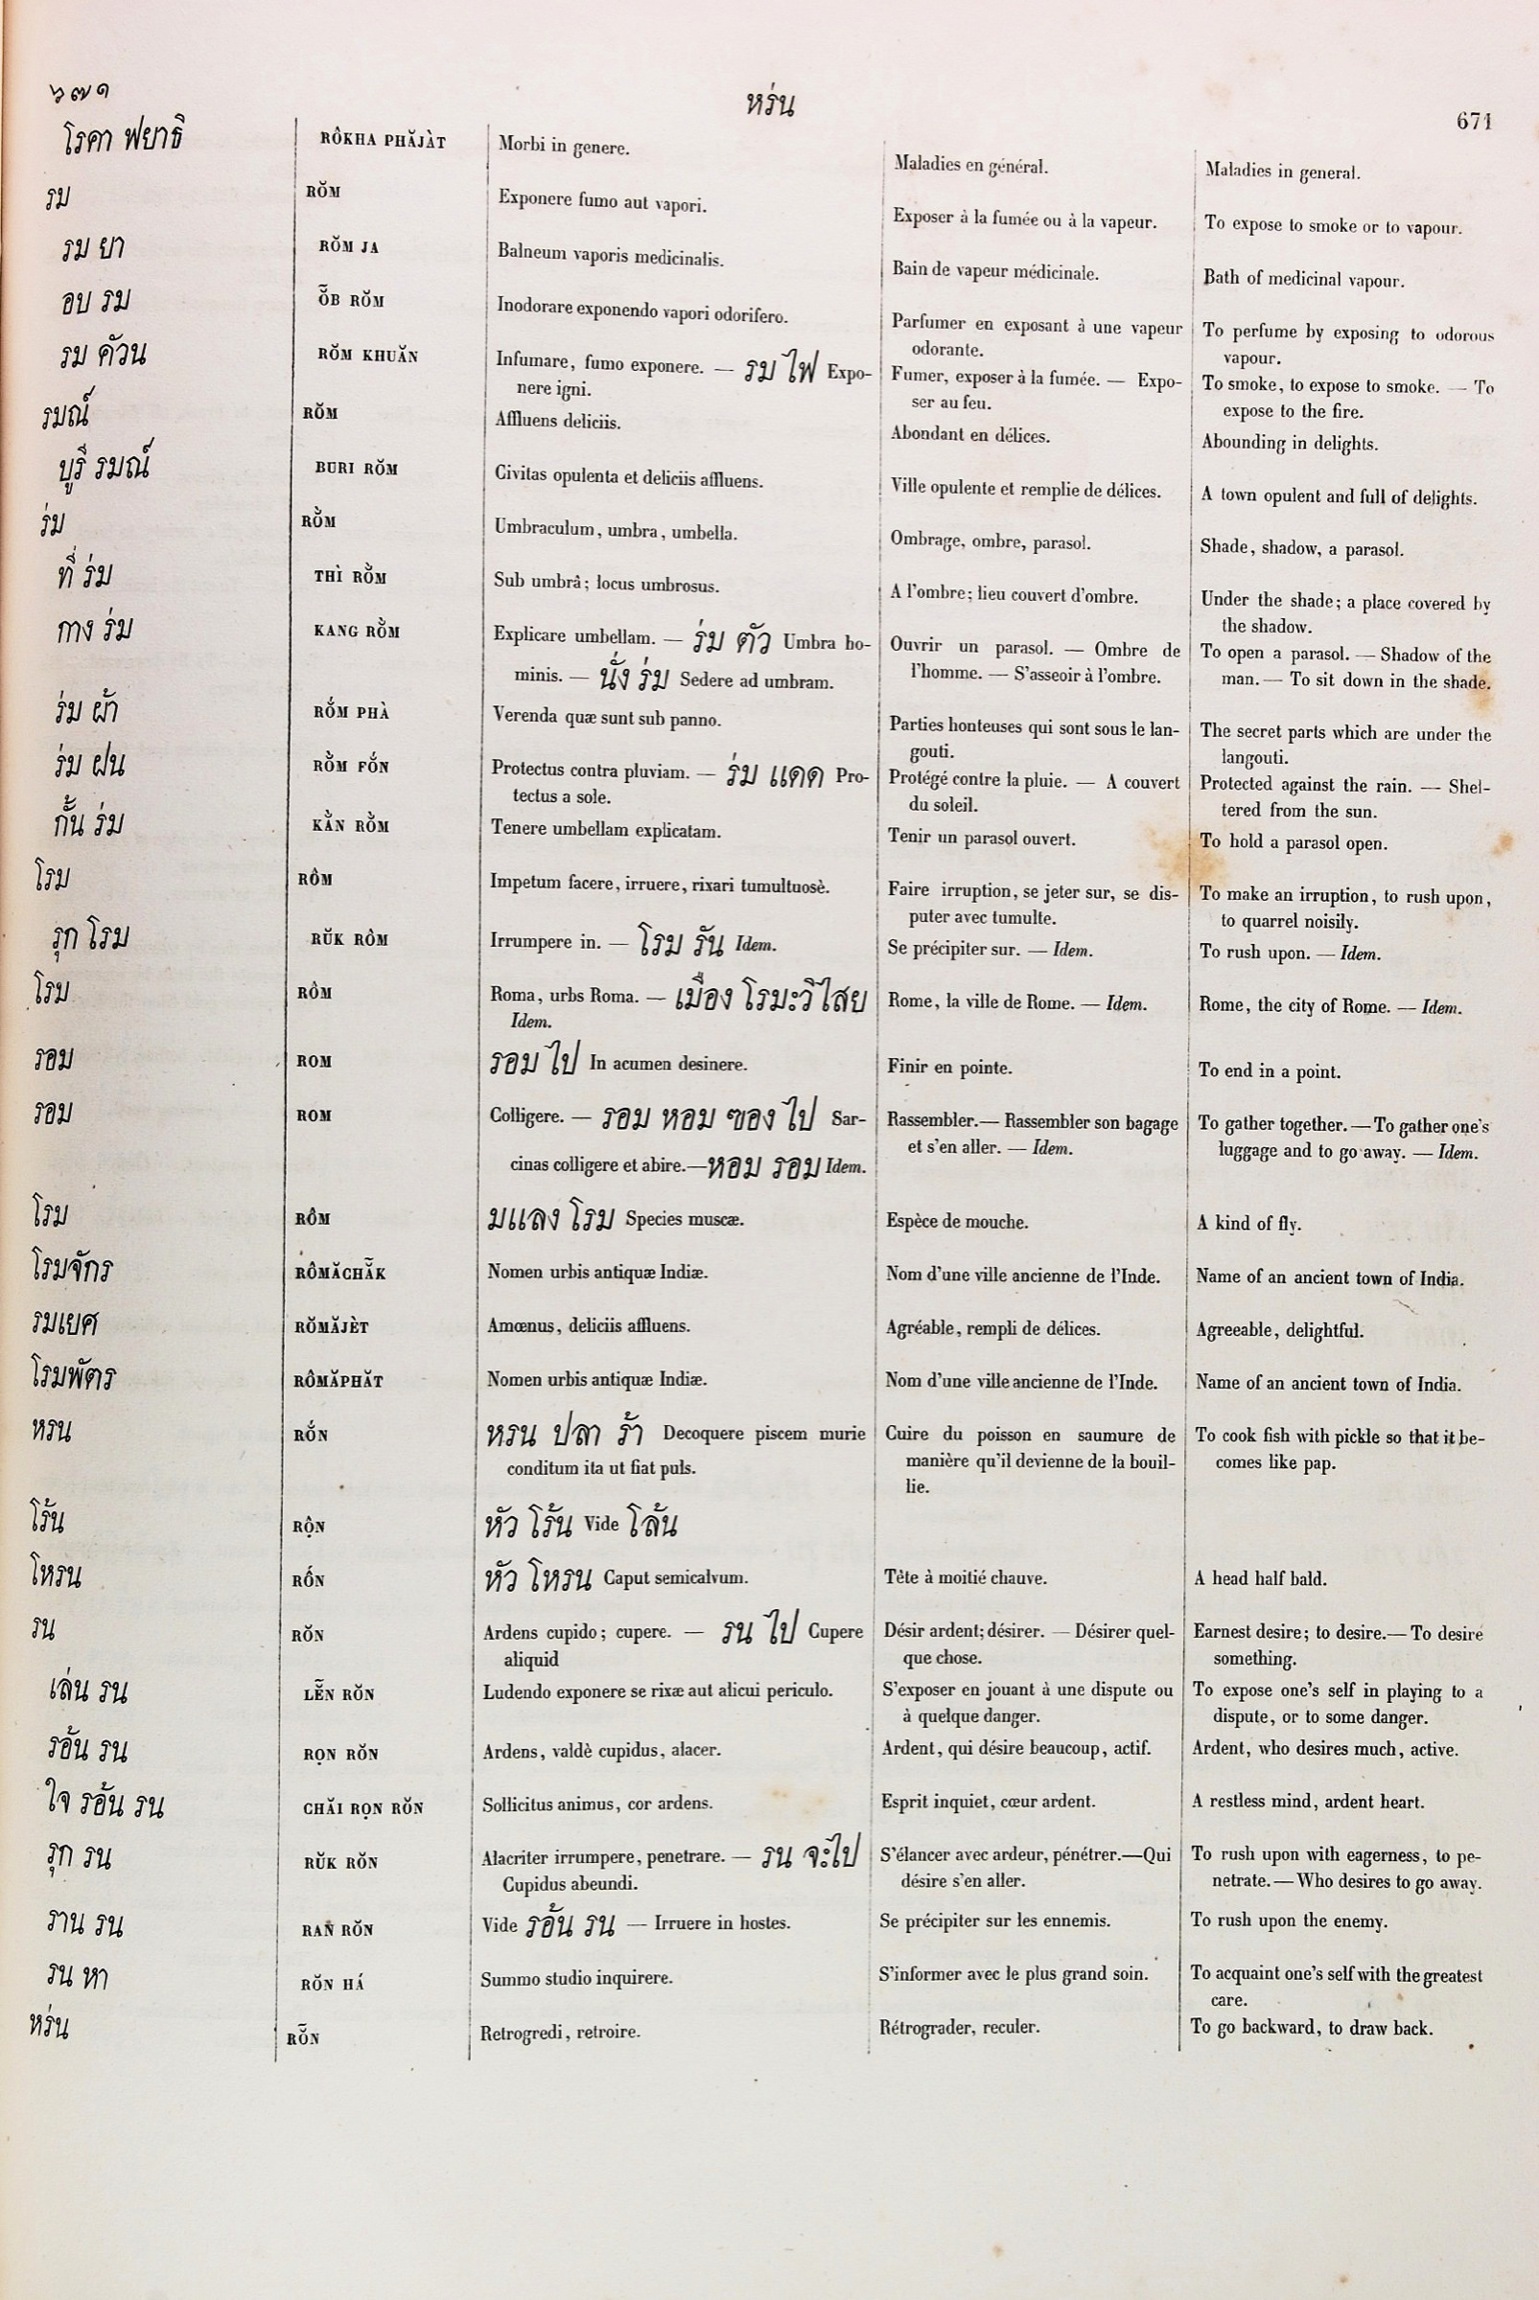 ๖๗๑ หร่น 671
โรคา ฟยาธิ RÔKHA PHĂJÀT Morbi in genere. Maladies en général. Maladies in general.
รม RŎM Exponere fumo aut vapori. Exposer à la fumée ou à la vapeur. To expose to smoke or to vapour.
รม ยา RŎM JA Balneum vaporis medicinalis. Bain de vapeur médicinale. Bath of medicinal vapour.
อบ รม ŎB RŎM Inodorare exponendo vapori odorifero. Parfumer en exposant à une vapeur To perfume by exposing to odorous
odorante. vapour.
รม คัวน RŎM KHUĂN Infumare, fumo exponere. — รม ไฟ Expo- Fumer, exposer à la fumée. — Expo- To smoke, to expose to smoke. — To
nere igni. ser au feu. expose to the fire.
รมณ์ RŎM Affluens deliciis. Abondant en délices. Abounding in delights.
บูรี รมณ์ BURI RŎM Civitas opulenta et deliciis affluens. Ville opulente et remplie de délices. A town opulent and full of delights.
ร่ม RŎ̀M Umbraculum, umbra, umbella. Ombrage, ombre, parasol. Shade, shadow, a parasol.
ที่ ร่ม THÌ RŎ̀M Sub umbrâ; locus umbrosus. A l'ombre; lieu couvert d'ombre. Under the shade; a place covered by
the shadow.
กาง ร่ม KANG RŎ̀M Explicare umbellam. — ร่ม ตัว Umbra ho- Ouvrir un parasol. — Ombre de To open a parasol. — Shadow of the
minis. — นั่ง ร่ม Sedere ad umbram. l'homme. — S'asseoir à l'ombre. man. — To sit down in the shade.
ร่ม ผ้า RŎ́M PHÀ Verenda quæ sunt sub panno. Parties honteuses qui sont sous le lan- The secret parts which are under the
gouti. langouti.
ร่ม ฝน RŎ̀M FŎ́N Protectus contra pluviam. — ร่ม แดด Pro- Protégé contre la pluie. — A couvert Protected against the rain. — Shel-
tectus a sole. du soleil. tered from the sun.
กั้น ร่ม KẰN RŎ̀M Tenere umbellam explicatam. Tenir un parasol ouvert. To hold a parasol open.
โรม RÔM Impetum facere, irruere, rixari tumultuosè. Faire irruption, se jeter sur, se dis- To make an irruption, to rush upon,
puter avec tumulte. to quarrel noisily.
รุก โรม RŬK RÔM Irrumpere in. — โรม รัน Idem. Se précipiter sur. — Idem. To rush upon. — Idem.
โรม RÔM Roma, urbs Roma. — เมือง โรมะวิไสย Rome, la ville de Rome. — Idem. Rome, the city of Rome. — Idem.
Idem.
รอม ROM รอม ไป In acumen desinere. Finir en pointe. To end in a point.
รอม ROM Colligere. — รอม หอม ของ ไป Sar- Rassembler.— Rassembler son bagage To gather together. — To gather one's
cinas colligere et abire.—หอม รอม Idem. et s'en aller. — Idem. luggage and to go away. — Idem.
โรม RÔM มแลง โรม Species muscæ. Espèce de mouche. A kind of fly.
โรมจักร RÔMĂCHẴK Nomen urbis antiquæ Indiæ. Nom d'une ville ancienne de l'Inde. Name of an ancient town of India.
รมเยศ RŎMĂJÈT Amœnus, deliciis affluens. Agréable, rempli de délices. Agreeable, delightful.
โรมพัตร RÔMĂPHĂT Nomen urbis antiquæ Indiæ. Nom d'une ville ancienne de l'Inde. Name of an ancient town of India.
หรน RŎ́N หรน ปลา ร้า Decoquere piscem murie Cuire du poisson en saumure de To cook fish with pickle so that it be-
conditum ita ut fiat puls. manière qu'il devienne de la bouil- comes like pap.
lie.
โร้น RỘN หัว โร้น Vide โล้น
โหรน RỐN หัว โหรน Caput semicalvum. Tête à moitié chauve. A head half bald.
รน RŎN Ardens cupido; cupere. — รน ไป Cupere Désir ardent; désirer. — Désirer quel- Earnest desire; to desire.— To desire
aliquid que chose. something.
เล่น รน LẼN RŎN Ludendo exponere se rixæ aut alicui periculo. S'exposer en jouant à une dispute ou To expose one's self in playing to a
à quelque danger. dispute, or to some danger.
รอ้น รน RỌN RŎN Ardens, valdè cupidus, alacer. Ardent, qui désire beaucoup, actif. Ardent, who desires much, active.
ใจ รอ้น รน CHĂI RỌN RŎN Sollicitus animus, cor ardens. Esprit inquiet, cœur ardent. A restless mind, ardent heart.
รุก รน RŬK RŎN Alacriter irrumpere, penetrare. — รน จะไป S'élancer avec ardeur, pénétrer.—Qui To rush upon with eagerness, to pe-
Cupidus abeundi. désire s'en aller. netrate. — Who desires to go away.
ราน รน RAN RŎN Vide รอ้น รน — Irruere in hostes. Se précipiter sur les ennemis. To rush upon the enemy.
รน หา RŎN HÁ Summo studio inquirere. S'informer avec le plus grand soin. To acquaint one's self with the greatest
care.
หร่น RŎ̃N Retrogredi, retroire. Rétrograder, reculer. To go backward, to draw back.